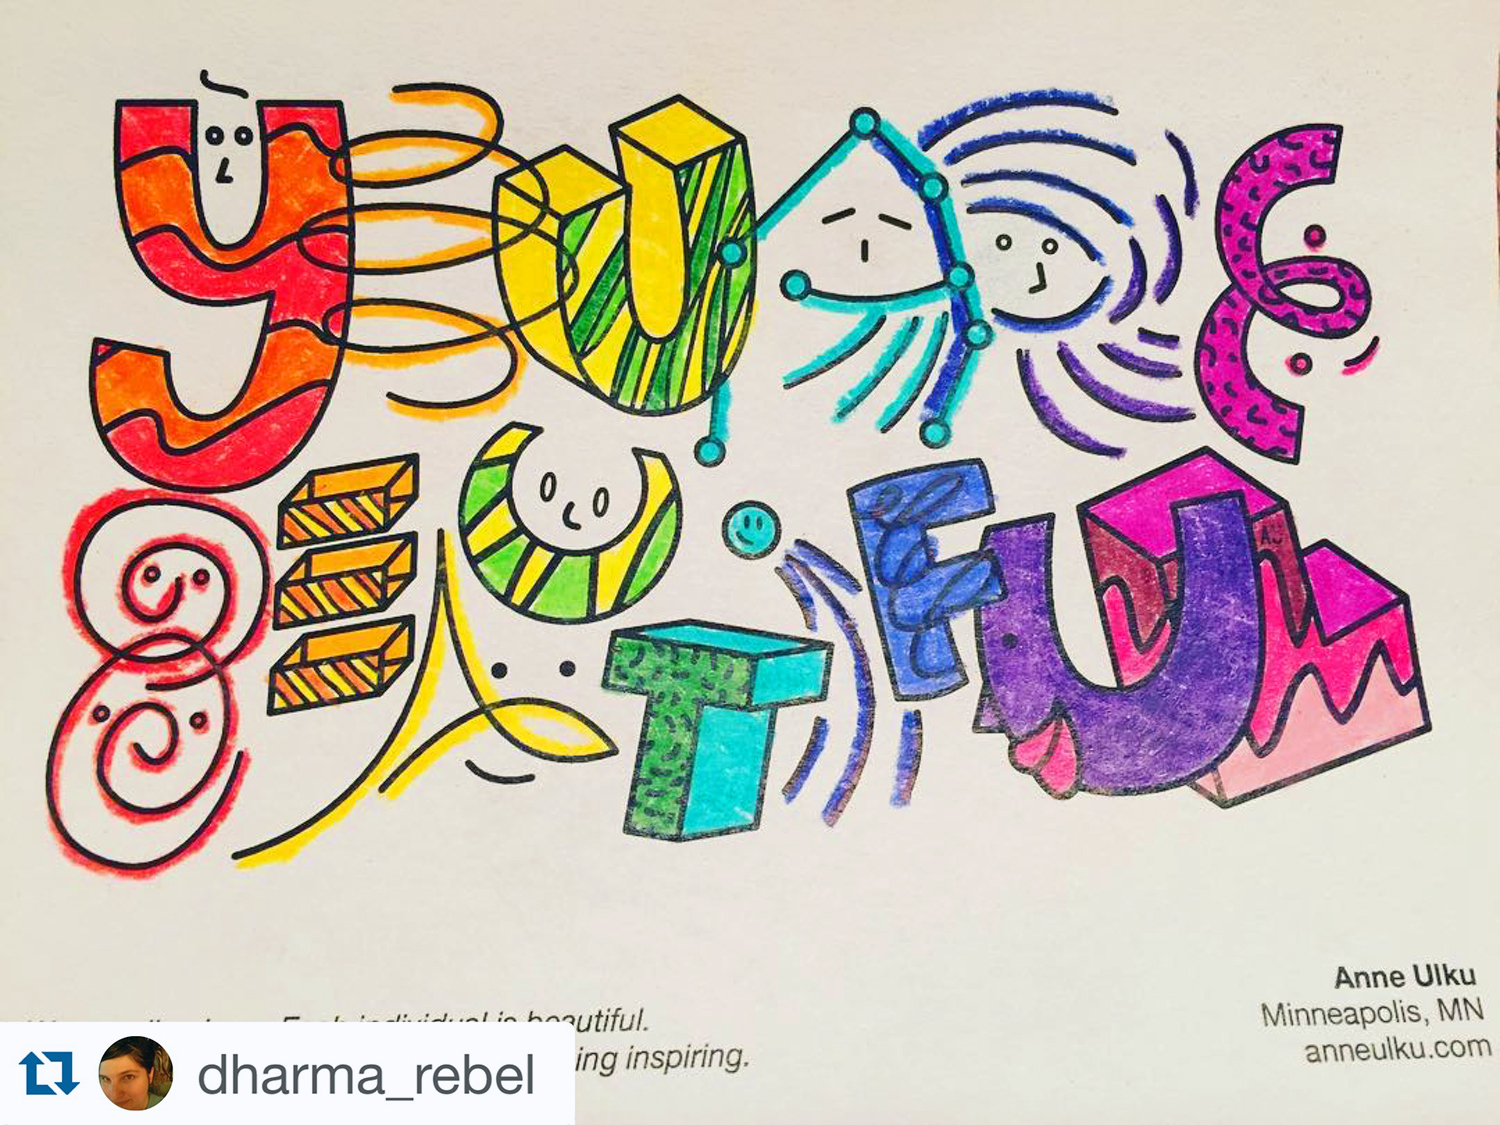 you are
BEAUTiFUL
AU
Each individual is beautiful.
ing inspiring.
Anne Ulku
Minneapolis, MN
anneulku.com
dharma_rebel